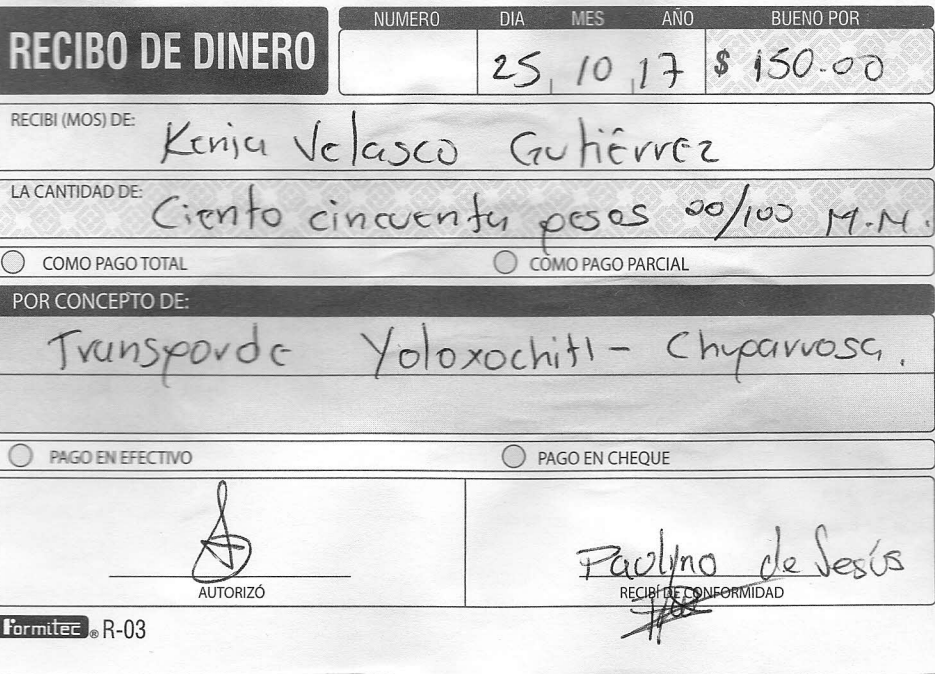 RECIBO DE DINERO
NUMERO DIA MES AÑO BUENO POR
25 10 17 $ 150.00
RECIBI (MOS) DE: Kenia Velasco Gutiérrez
LA CANTIDAD DE: Ciento cincuenta pesos 00/100 M.N.
COMO PAGO TOTAL COMO PAGO PARCIAL
POR CONCEPTO DE:
Transporde Yoloxochitl - Chuparrosa.
PAGO EN EFECTIVO PAGO EN CHEQUE
Paulyno de Jesús
AUTORIZÓ RECIBÍ DE CONFORMIDAD
Formitec ® R-03